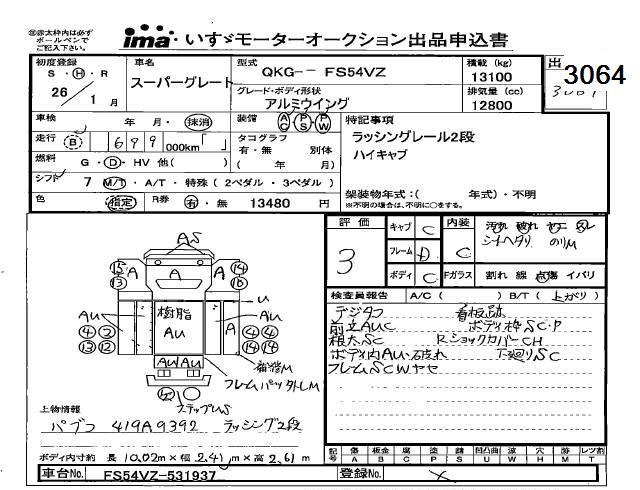 ㊟赤太枠内は必ず
ボールペンで
ご記入下さい。
ima いすゞモーターオークション出品申込書
初度登録
S・H・R
26 / 1 月
車名
スーパーグレート
型式
QKG-- FS54VZ
グレード・ボディ形状
アルミウイング
積載 (kg)
13100
排気量 (cc)
12800
出
3064
車検
年 月・抹消
装備 AC PS PW
特記事項
ラッシングレール2段
ハイキャブ
走行 B 699 000km
タコグラフ
有・無 別体
( 年 月)
燃料 G・D・HV 他( )
シフト 7 M/T・A/T・特殊 (2ペダル・3ペダル)
架装物年式:( 年式)・不明
※不明の場合は、不明に○をする。
色 指定 R券 有・無 13480 円
評価
3
キャブ C
フレーム D
ボディ C
内装
C
Fガラス
汚れ 破れ ヤニ スレ
シートヘタリ のリM
割れ 線 点傷 イバリ
検査員報告 A/C ( ) B/T ( 上がり )
デジタコ 看板跡
前立AUC ボディ枠SC・P
根太SC RショックカバーCH
ボディ内AU・破れ 下廻りSC
フレームSCWヤセ
AS
15
13
A
A
A
14
16
Au
樹脂
Au
U
Au
A
4 2
13 12
4 4
14 14
Au Au
補階M
フレームパッツ外しM
ステップUS
上物情報
パブコ 419A9392 ラッシング2段
ボディ内寸約 長 10.02m × 幅 2.41m × 高 2.61m
記号 傷 板金 腐 塗 錆 凹凸曲 波 穴 跡 レツ割
A B C P S U W H M T
車台No. FS54VZ-531937
登録No.